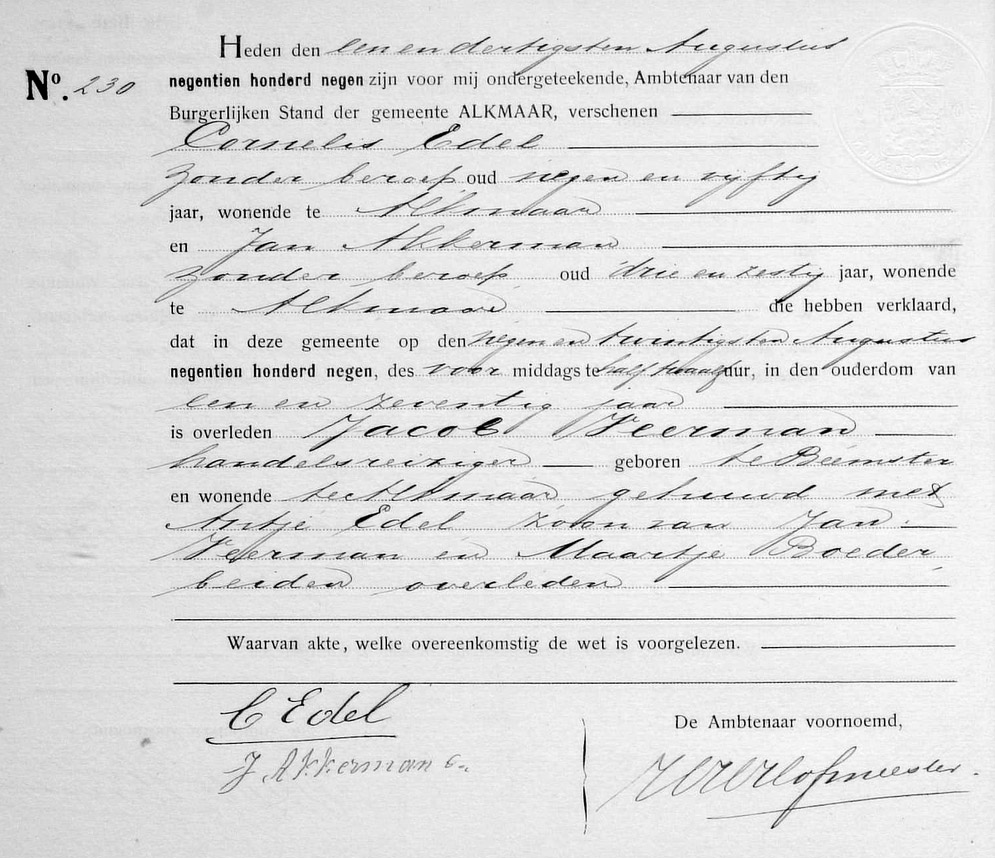 Heden den een en dertigsten Augustus
No. 230
negentien honderd negen zijn voor mij ondergeteekende, Ambtenaar van den
Burgerlijken Stand der gemeente ALKMAAR, verschenen
Cornelis Edel
zonder beroep oud negen en vyftig
jaar, wonende te Alkmaar
en Jan Akkerman
zonder beroep oud drie en zestig jaar, wonende
te Alkmaar die hebben verklaard,
dat in deze gemeente op den negen en twintigsten Augustus
negentien honderd negen, des voor middags te half twaalf uur, in den ouderdom van
een en zeventig jaar
is overleden Jacob Veerman
handelsreiziger geboren te Beemster
en wonende te Alkmaar gehuwd met
Antje Edel zoon van Jan
Veerman en Maartje Boeder
beiden overleden
Waarvan akte, welke overeenkomstig de wet is voorgelezen.
C Edel
De Ambtenaar voornoemd,
J Akkerman
Hofmeester.